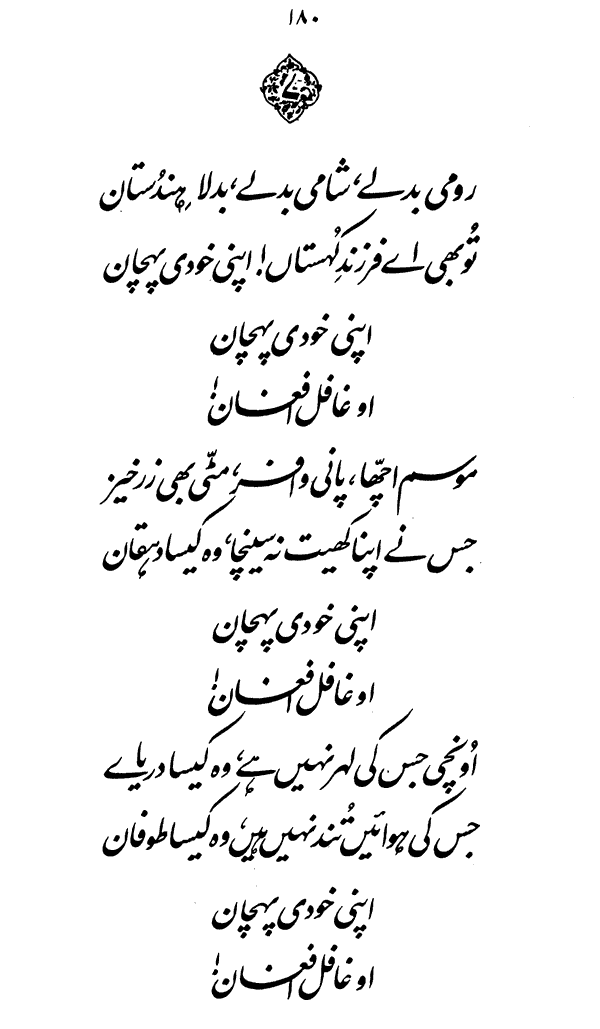 ۱۸۰
۷
رومی بدلے، شامی بدلے، بدلا ہندُستان
تُو بھی اے فرزندِ کُہستاں! اپنی خودی پہچان
اپنی خودی پہچان
او غافل افغان!
موسم اچھّا، پانی وافر، مٹّی بھی زرخیز
جس نے اپنا کھیت نہ سینچا، وہ کیسا دہقان
اپنی خودی پہچان
او غافل افغان!
اُونچی جس کی لہر نہیں ہے، وہ کیسا دریاے
جس کی ہوائیں تُند نہیں ہیں، وہ کیسا طوفان
اپنی خودی پہچان
او غافل افغان!